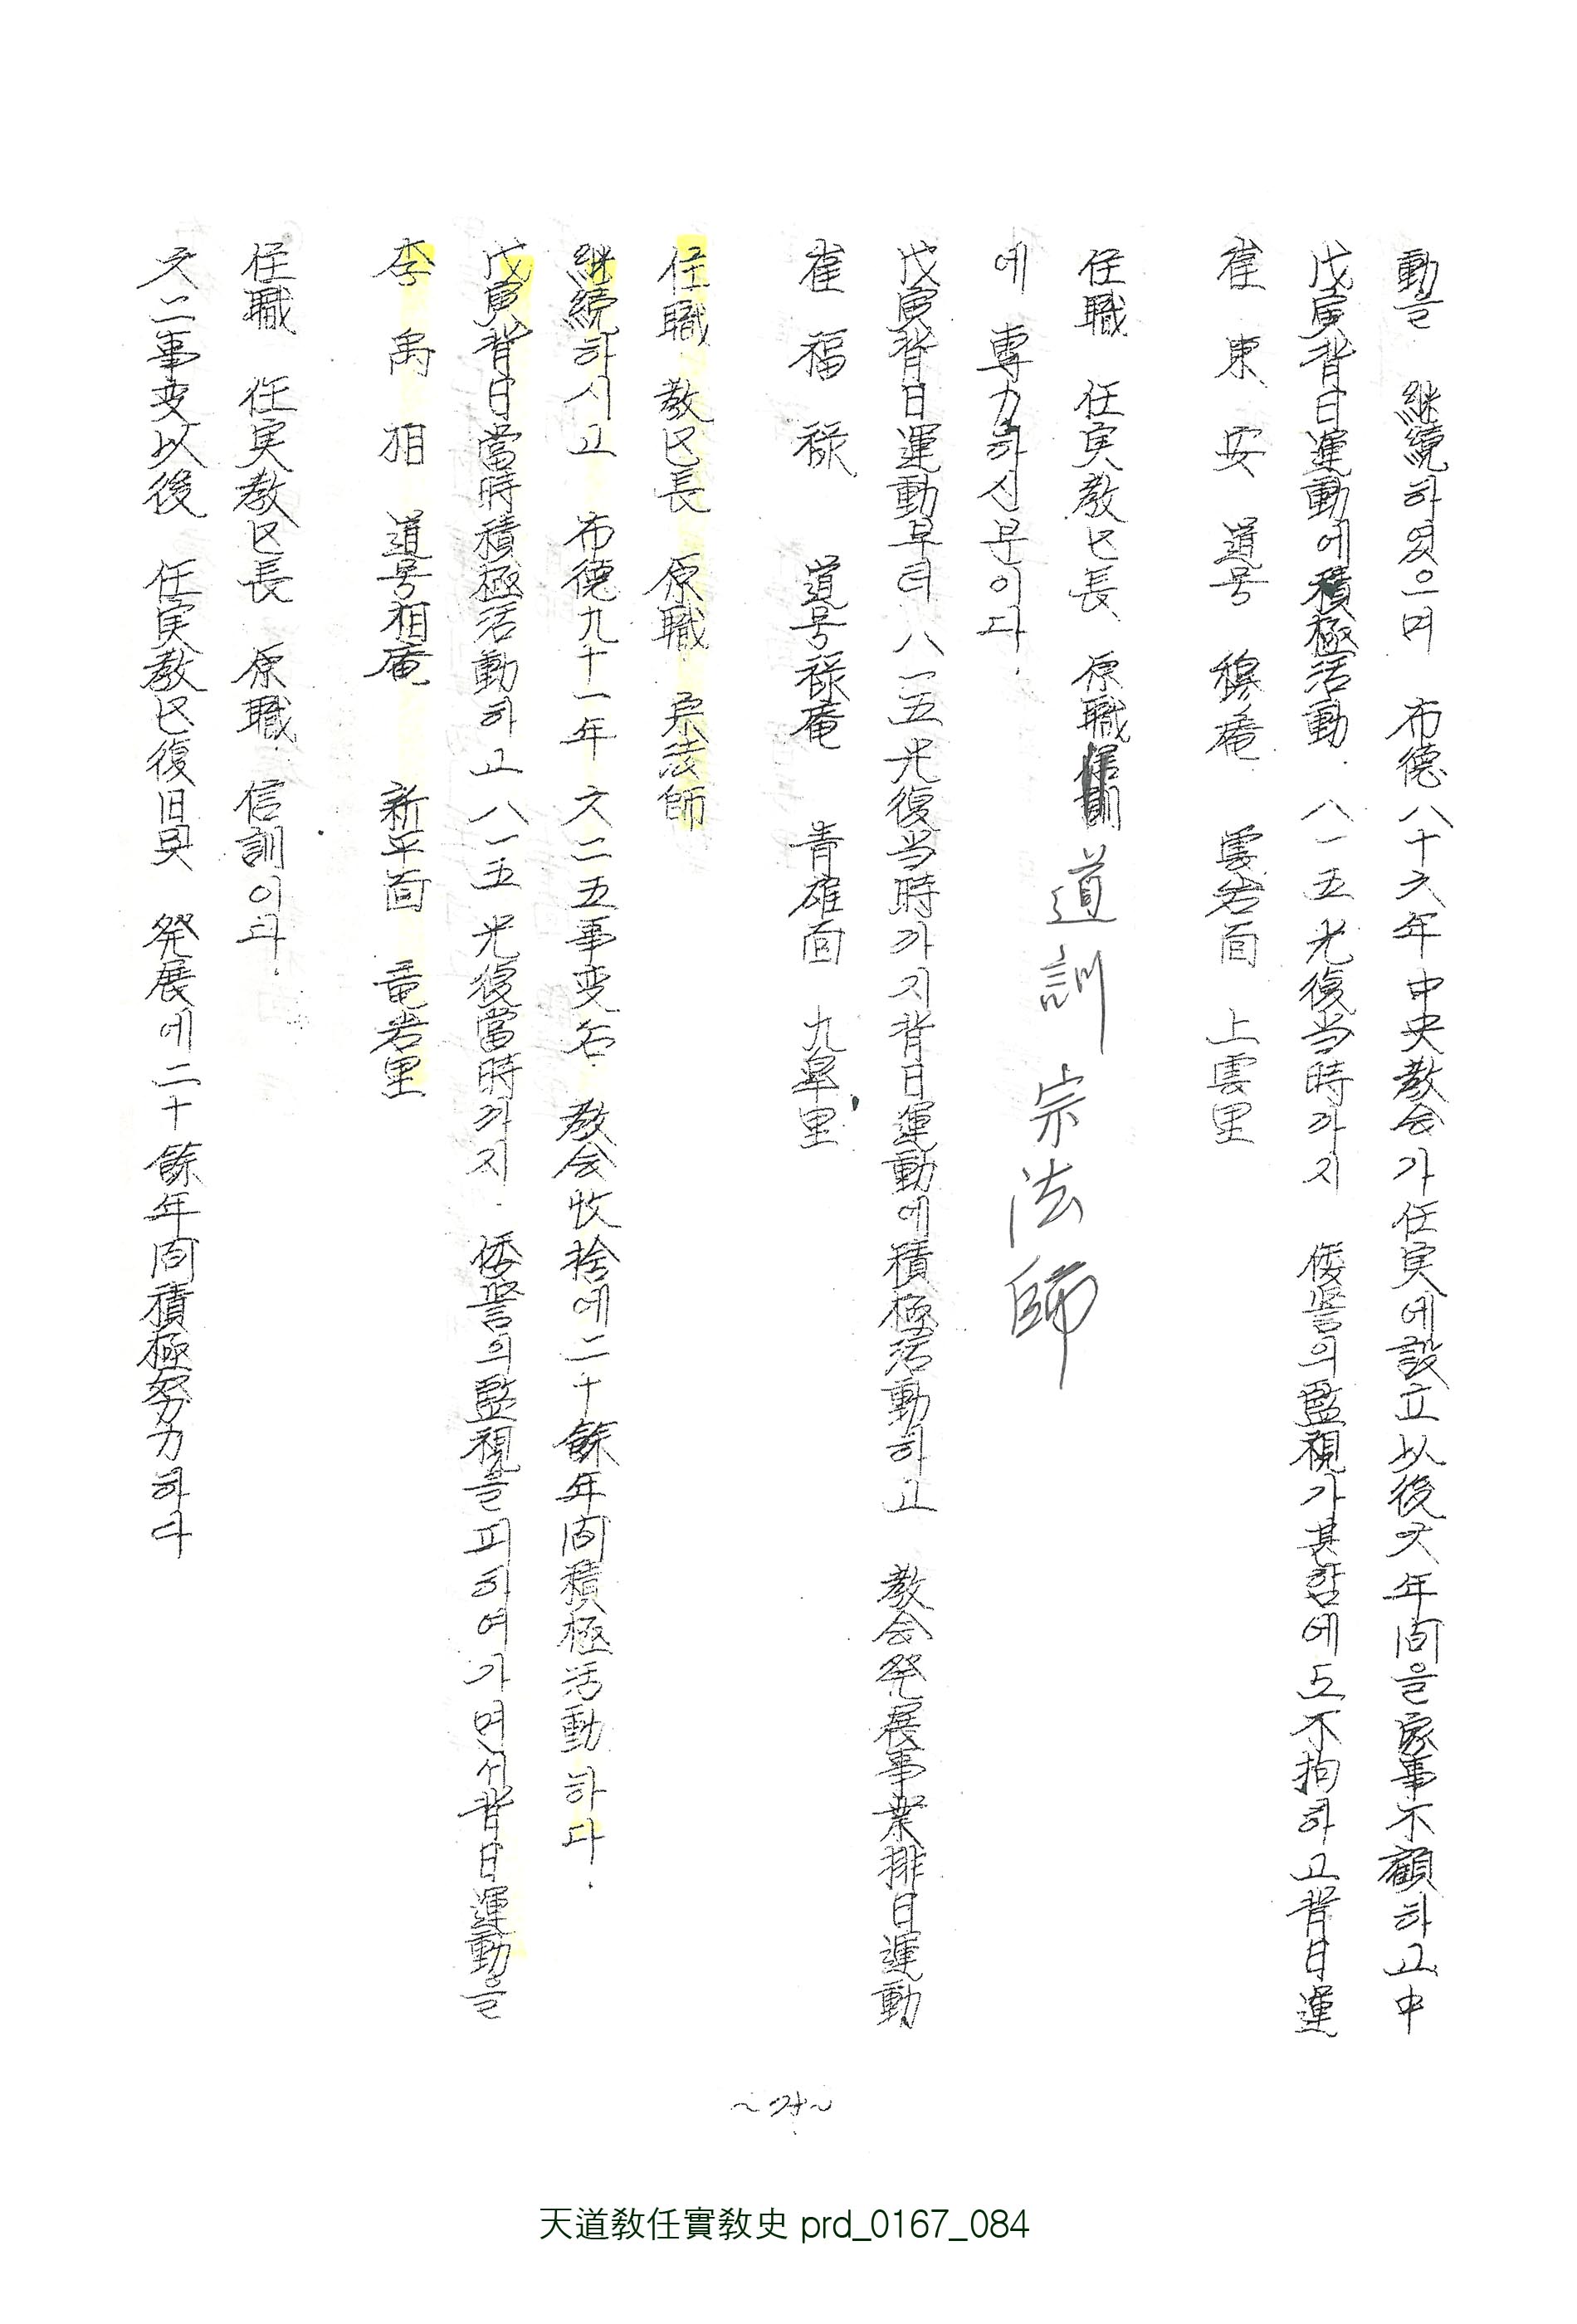 動을 継続하였으며 布德八十六年中央教会가任実에設立以後六年间을家事不顧하고中
戊寅背日運動에積極活動. 八一五光復当時까지 倭警의監視가甚함에도不拘하고背日運
崔東安 道号 穆庵 雲岩面 上雲里
任職 任実教区長 原職 道訓 宗法師
에 専力하신분이다.
戊寅背日運動부터 八一五光復当時까지背日運動에積極活動하고 教会発展事業排日運動
崔福禄 道号禄庵 青雄面 九皐里
任職 教区長 原職 宗法師
継続하시고 布德九十一年 六二五事変后 教会收拾에二十餘年间積極活動하다.
戊寅背日當時積極活動하고 八一五 光復當時까지. 倭警의監視을피하여가며서背日運動을
李禹相 道号相庵 新平面 竜岩里
任職 任実教区長 原職 信訓이다.
六二事変以後 任実教区復旧与 発展에二十餘年间積極努力하다
天道敎任實敎史 prd_0167_084